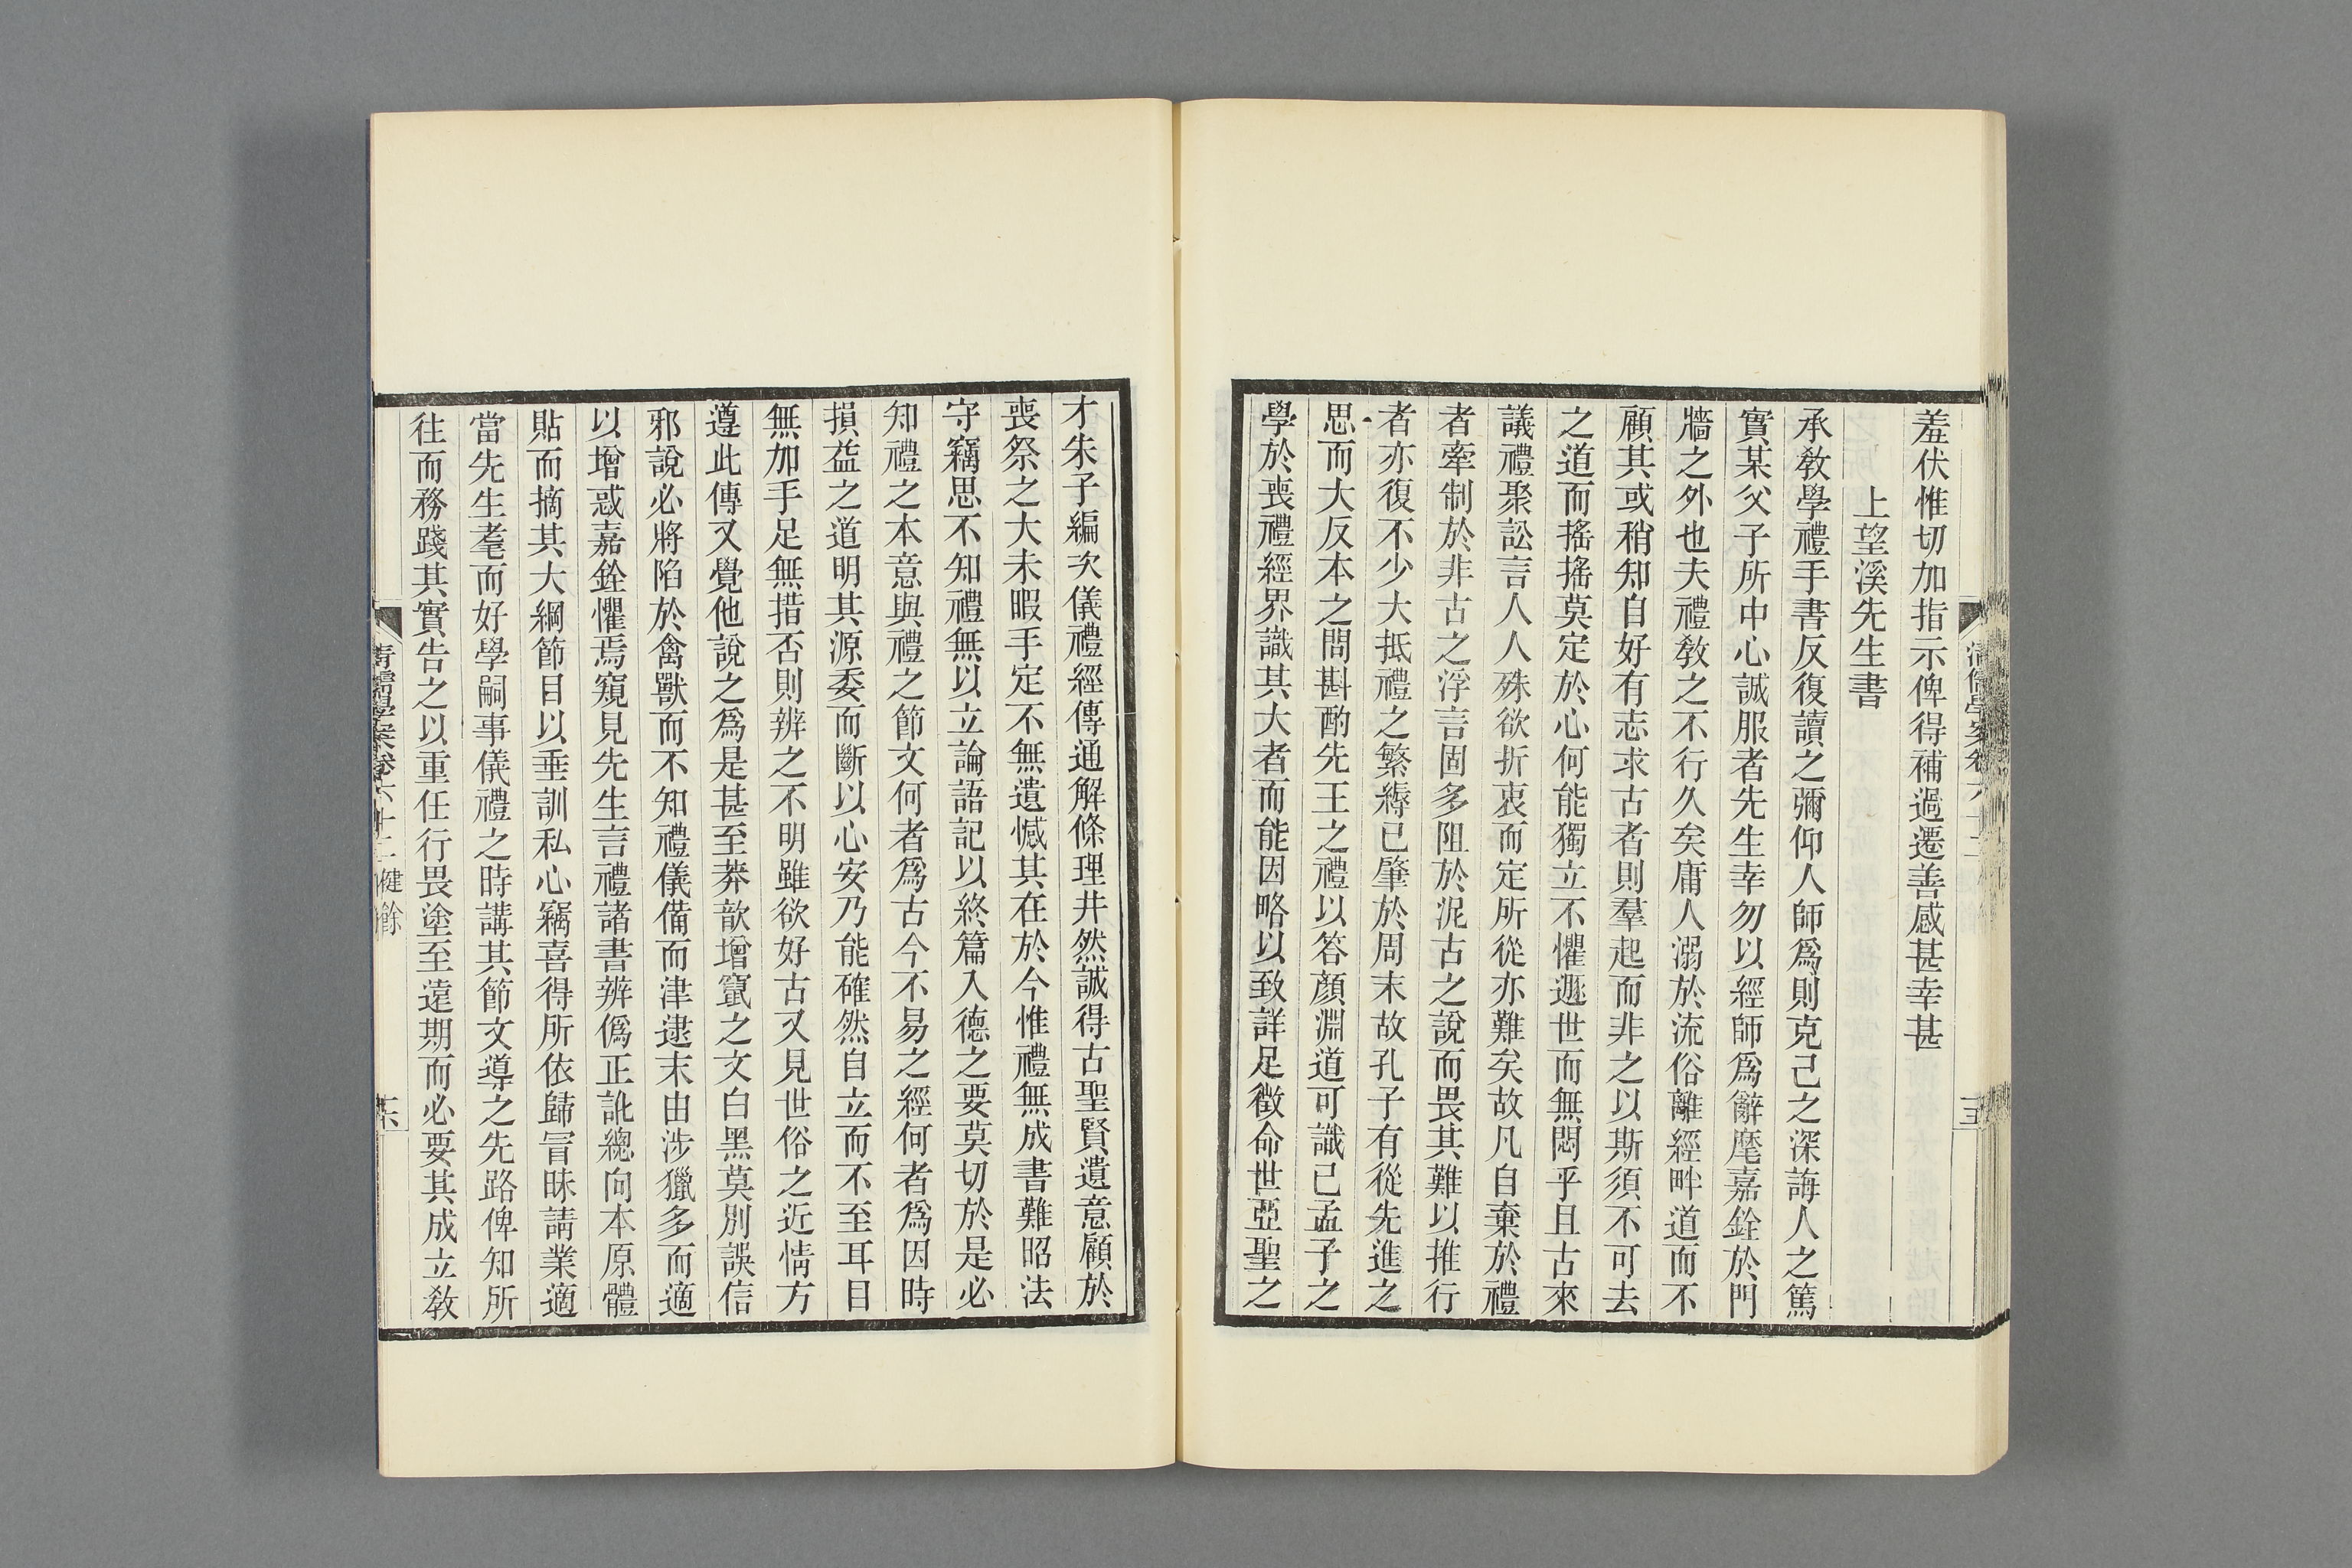 羞伏惟切加指示俾得補過遷善感甚幸甚
上望溪先生書
承敎學禮手書反復讀之彌仰人師爲則克己之深誨人之篤
實某父子所中心誠服者先生幸勿以經師爲辭麾嘉銓於門
牆之外也夫禮敎之不行久矣庸人溺於流俗離經畔道而不
顧其或稍知自好有志求古者則羣起而非之以斯須不可去
之道而搖搖莫定於心何能獨立不懼遯世而無悶乎且古來
議禮聚訟言人人殊欲折衷而定所從亦難矣故凡自棄於禮
者牽制於非古之浮言固多阻於泥古之說而畏其難以推行
者亦復不少大抵禮之繁縟已肇於周末故孔子有從先進之
思而大反本之問斟酌先王之禮以答顏淵道可識已孟子之
學於喪禮經界識其大者而能因略以致詳足徵命世亞聖之
才朱子編次儀禮經傳通解條理井然誠得古聖賢遺意顧於
喪祭之大未暇手定不無遺憾其在於今惟禮無成書難昭法
守竊思不知禮無以立論語記以終篇入德之要莫切於是必
知禮之本意與禮之節文何者爲古今不易之經何者爲因時
損益之道明其源委而斷以心安乃能確然自立而不至耳目
無加手足無措否則辨之不明雖欲好古又見世俗之近情方
遵此傳又覺他說之爲是甚至莽歆增竄之文白黑莫別誤信
邪說必將陷於禽獸而不知禮儀備而津逮末由涉獵多而適
以增惑嘉銓懼焉窺見先生言禮諸書辨僞正訛總向本原體
貼而摘其大綱節目以垂訓私心竊喜得所依歸冒昧請業適
當先生耄而好學嗣事儀禮之時講其節文導之先路俾知所
往而務踐其實告之以重任行畏塗至遠期而必要其成立敎
清儒學案卷六十二 健餘